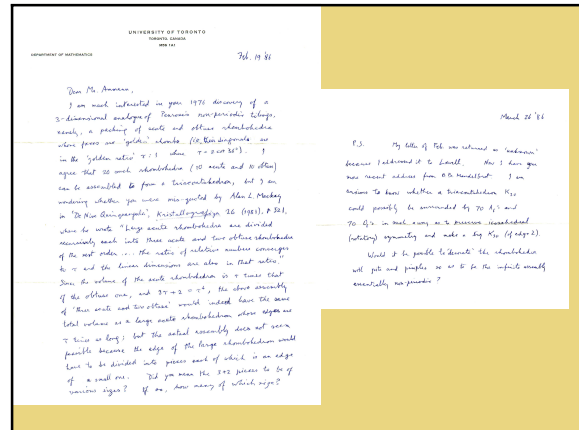 UNIVERSITY OF TORONTO
TORONTO, CANADA
M5S 1A1
DEPARTMENT OF MATHEMATICS
Feb. 19 '86
Dear Mr. Ammann,
I am much interested in your 1976 discovery of a
3-dimensional analogue of Penrose's non-periodic tilings,
namely, a packing of acute and obtuse rhombohedra
whose faces are 'golden' rhombs (i.e., their diagonals are
in the 'golden ratio' τ : 1 where τ = 2 cos 36°). I
agree that 20 such rhombohedra (10 acute and 10 obtuse)
can be assembled to form a triacontahedron, but I am
wondering whether you were mis-quoted by Alan L. Mackay
in 'De Nive Quinquangula', Kristallografiya 26 (1981), p. 521,
where he wrote "Large acute rhombohedra are divided
recursively each into three acute and two obtuse rhombohedra
of the next order ... the ratio of relative numbers converges
to τ and the linear dimensions are also in that ratio."
Since the volume of the acute rhombohedron is τ times that
of the obtuse one, and 3τ + 2 = τ⁴, the above assembly
of 'three acute and two obtuse' would indeed have the same
total volume as a large acute rhombohedron whose edges are
τ times as long; but the actual assembly does not seem
possible because the edge of the large rhombohedron would
have to be divided into pieces each of which is an edge
of a small one. Did you mean the 3+2 pieces to be of
various sizes? If so, how many of which size?
March 26 '86
P.S. My letter of Feb. was returned as 'unknown'
because I addressed it to Lowell. Now I have your
more recent address from B.B. Mandelbrot. I am
anxious to know whether a triacontahedron K₃₀
could possibly be surrounded by 70
70 in such a way as to preserve icosahedral
(rotatory) symmetry and make a big K₃₀ (of edge 2).
Would it be possible to 'decorate' the rhombohedra
with pits and pimples so as to make the infinite assembly
essentially non-periodic?